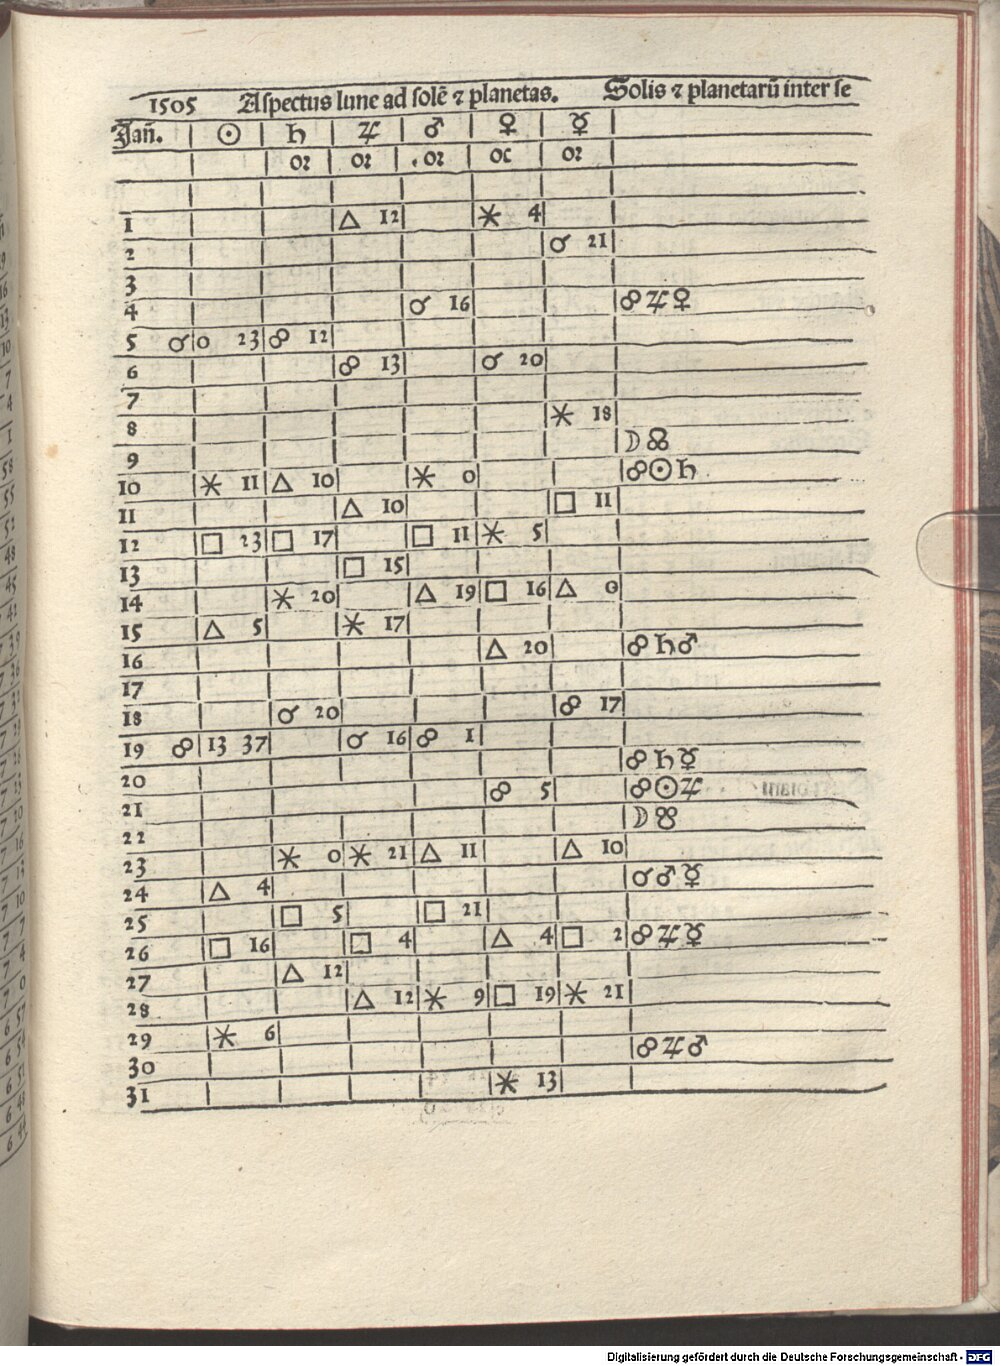 1505 Aspectus lune ad solē ⁊ planetas. Solis ⁊ planetarū inter se
Jañ. ☉ ♄ ♃ ♂ ♀ ☿
oꝛ oꝛ oꝛ oc oꝛ
1 △ 12 ⚹ 4
2 ☌ 21
3
4 ☌ 16 ☍ ♃ ♀
5 ☌ 0 23 ☍ 12
6 ☍ 13 ☌ 20
7
8 ⚹ 18
9 ☽ ☊
10 ⚹ 11 △ 10 ⚹ 0 ☍ ☉ ♄
11 △ 10 □ 11
12 □ 23 □ 17 □ 11 ⚹ 5
13 □ 15
14 ⚹ 20 △ 19 □ 16 △ 0
15 △ 5 ⚹ 17
16 △ 20 ☍ ♄ ♂
17
18 ☌ 20 ☍ 17
19 ☍ 13 37 ☌ 16 ☍ 1
20 ☍ ♄ ☿
21 ☍ 5 ☍ ☉ ♃
22 ☽ ☋
23 ⚹ 0 ⚹ 21 △ 11 △ 10
24 △ 4 ☌ ♂ ☿
25 □ 5 □ 21
26 □ 16 □ 4 △ 4 □ 2 ☍ ♃ ☿
27 △ 12
28 △ 12 ⚹ 9 □ 19 ⚹ 21
29 ⚹ 6
30 ☍ ♃ ♂
31 ⚹ 13
Digitalisierung gefördert durch die Deutsche Forschungsgemeinschaft - DFG